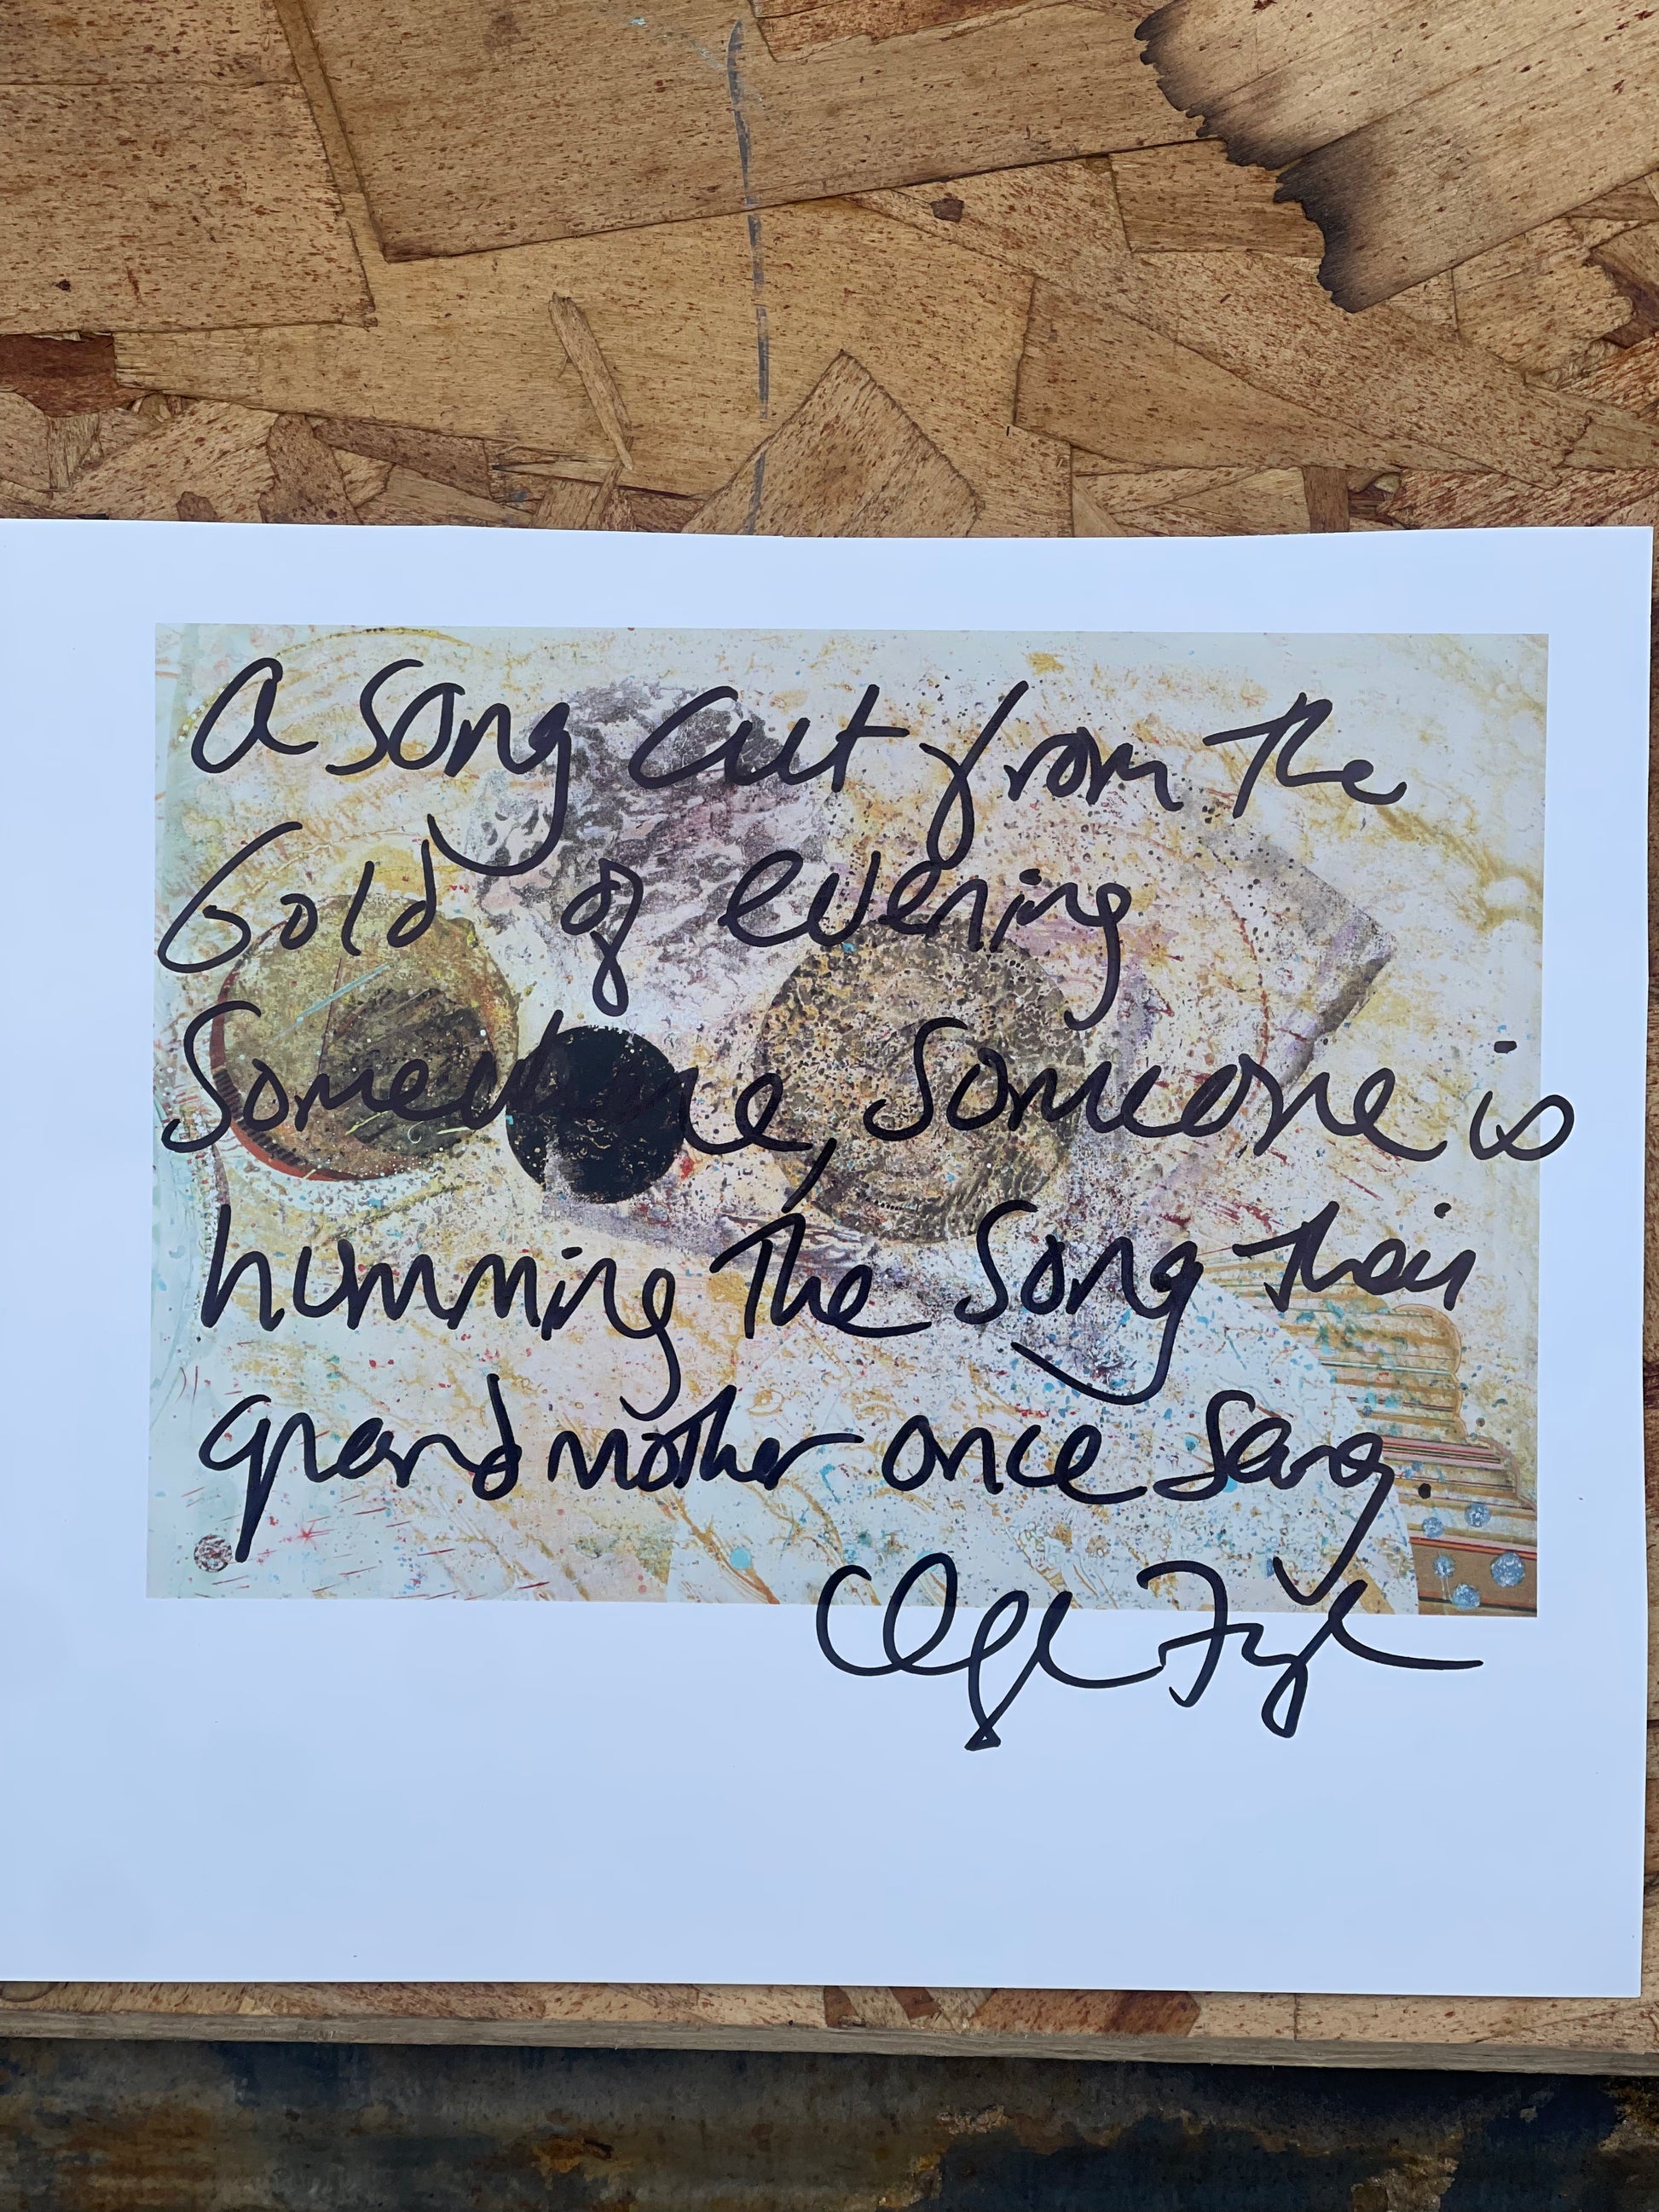 a song cut from the
Gold of evening
Somewhere, Someone is
humming the song their
grandmother once sang.